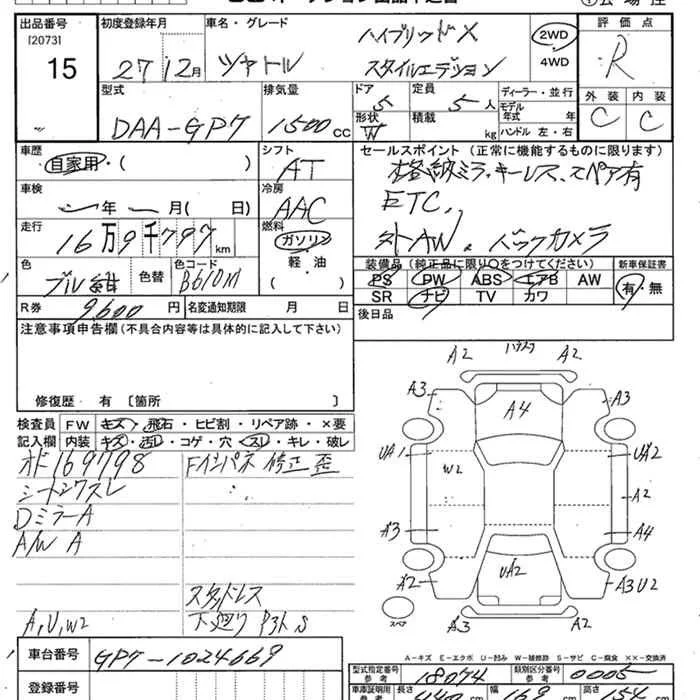 出品番号 初度登録年月 車名・グレード 評価点
[20731
15 27年12月 シャトル ハイブリッドX
スタイルエディション 2WD
4WD R
型式 排気量 ドア 定員 ディーラー・並行 外装 内装
DAA-GP7 1500cc 5 5人 モデル年式 年 C C
形状 W 積載 kg ハンドル 左・右
車歴 シフト セールスポイント(正常に機能するものに限ります)
自家用・( ) AT
車検 冷房
年 月( 日) AAC ETC.
走行 燃料
16万9千797km ガソリン 社外AW バックカメラ
色 色替 色コード 軽・油 装備品(純正品に限り○をつけてください) 新車保証書
ブルー紺 B610M ( ) PS PW ABS エアB AW 有・無
SR ナビ TV カワ
R券 9600円 名変通知期限 月 日 後日品
注意事項申告欄(不具合内容等は具体的に記入して下さい)
修復歴 有 〔箇所 〕
検査員 FW キズ・飛石・ヒビ割・リペア跡・×要
記入欄 内装 キズ・汚レ・コゲ・穴・スレ・キレ・破レ
オド169798 Fインパネ 修正 歪
シートシワスレ
DミラーA
A/W A
スタッドレス
A,U,W2 下廻り S
A2 A2
A3 A4 A3
UA1 W2 UA2
A2
A3 A4
A2 UA2 A3U2
スペア A3 A2
A-キズ E-エクボ U-凹み W-補修跡 S-サビ C-腐食 ××-交換済
車台番号 GP7-1024669
型式指定番号 参考 18074 類別区分番号 参考 0005
登録番号 車庫証明用 参考 長さ 440cm 幅 169cm 高さ 154cm